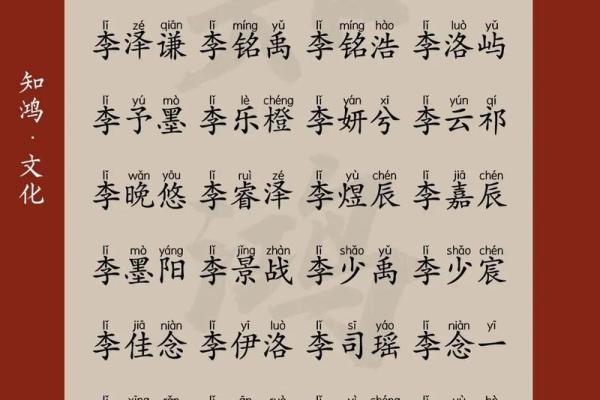 知鸿·文化
lǐ zé qiān lǐ míng yǔ lǐ míng hào lǐ luò yǔ
李泽谦 李铭禹 李铭浩 李洛屿
lǐ yú mò lǐ lè chéng lǐ yán xī lǐ yún qí
李予墨 李乐橙 李妍兮 李云祁
lǐ wǎn yōu lǐ ruì zé lǐ yù chén lǐ jiā chén
李晚悠 李睿泽 李煜辰 李嘉辰
lǐ mò yáng lǐ jǐng zhàn lǐ shǎo yǔ lǐ shǎo chén
李墨阳 李景战 李少禹 李少宸
lǐ jiā niàn lǐ yī luò lǐ sī yáo lǐ niàn yī
李佳念 李伊洛 李司瑶 李念一